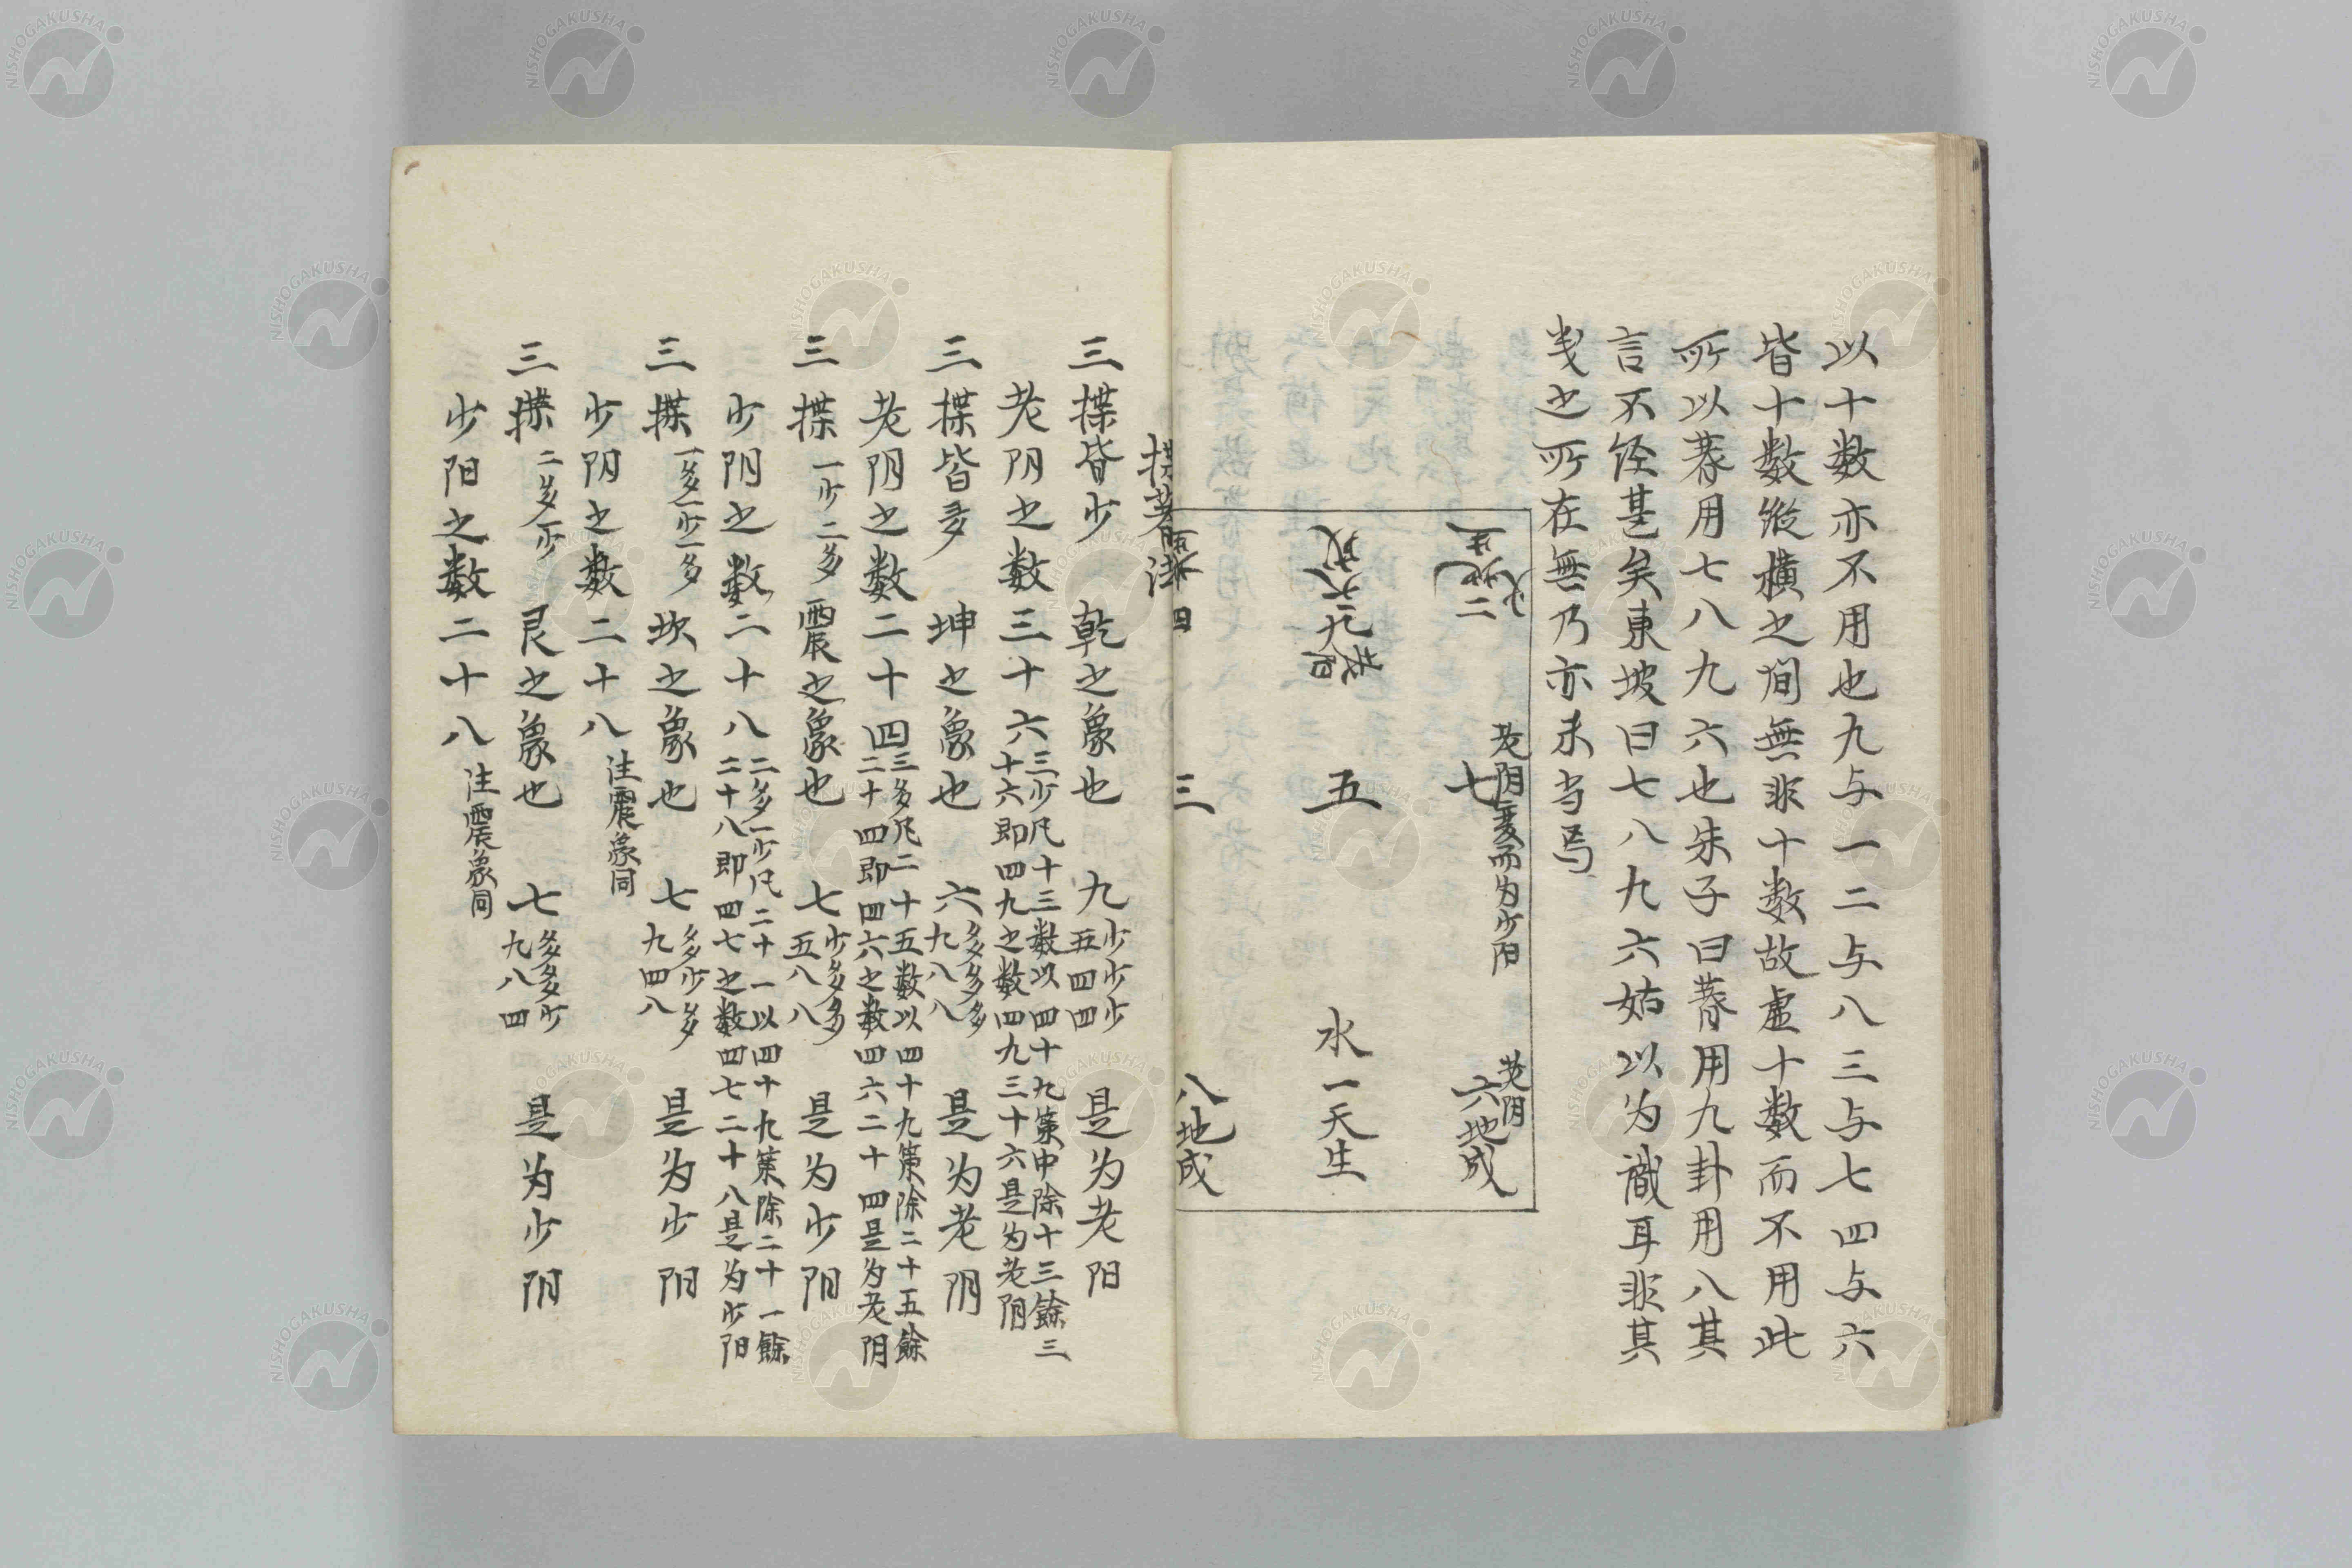 以十数亦不用也九与一二与八三与七四与六
皆十数縦横之间無非十数故虚十数而不用此
所以蓍用七八九六也朱子曰蓍用九卦用八其
言不经甚矣東坡曰七八九六姑以为識耳非其
之所在無乃亦未当焉
老阴变而为少阳
老阴
七
六地成
五
水一天生
三
八地成
揲蓍法
三揲皆少 乾之象也 九 少少少 五四四 是为老阳
老阴之数三十六 三少凡十三数以四十九策中除十三餘三
十六即四九之数四九三十六是为老阴
三揲皆多 坤之象也 六 多多多 九八八 是为老阴
老阴之数二十四 三多凡二十五数以四十九策除二十五餘
二十四即四六之数四六二十四是为老阴
三揲 一少二多 震之象也 七 少多多 五八八 是为少阳
少阴之数二十八 二多一少凡二十一以四十九策除二十一餘
二十八即四七之数四七二十八是为少阳
三揲 一多一少一多 坎之象也 七 多少多 九四八 是为少阳
少阴之数二十八 注震象同
三揲 二多一少 艮之象也 七 多多少 九八四 是为少阴
少阳之数二十八 注震象同
NISHOGAKUSHA